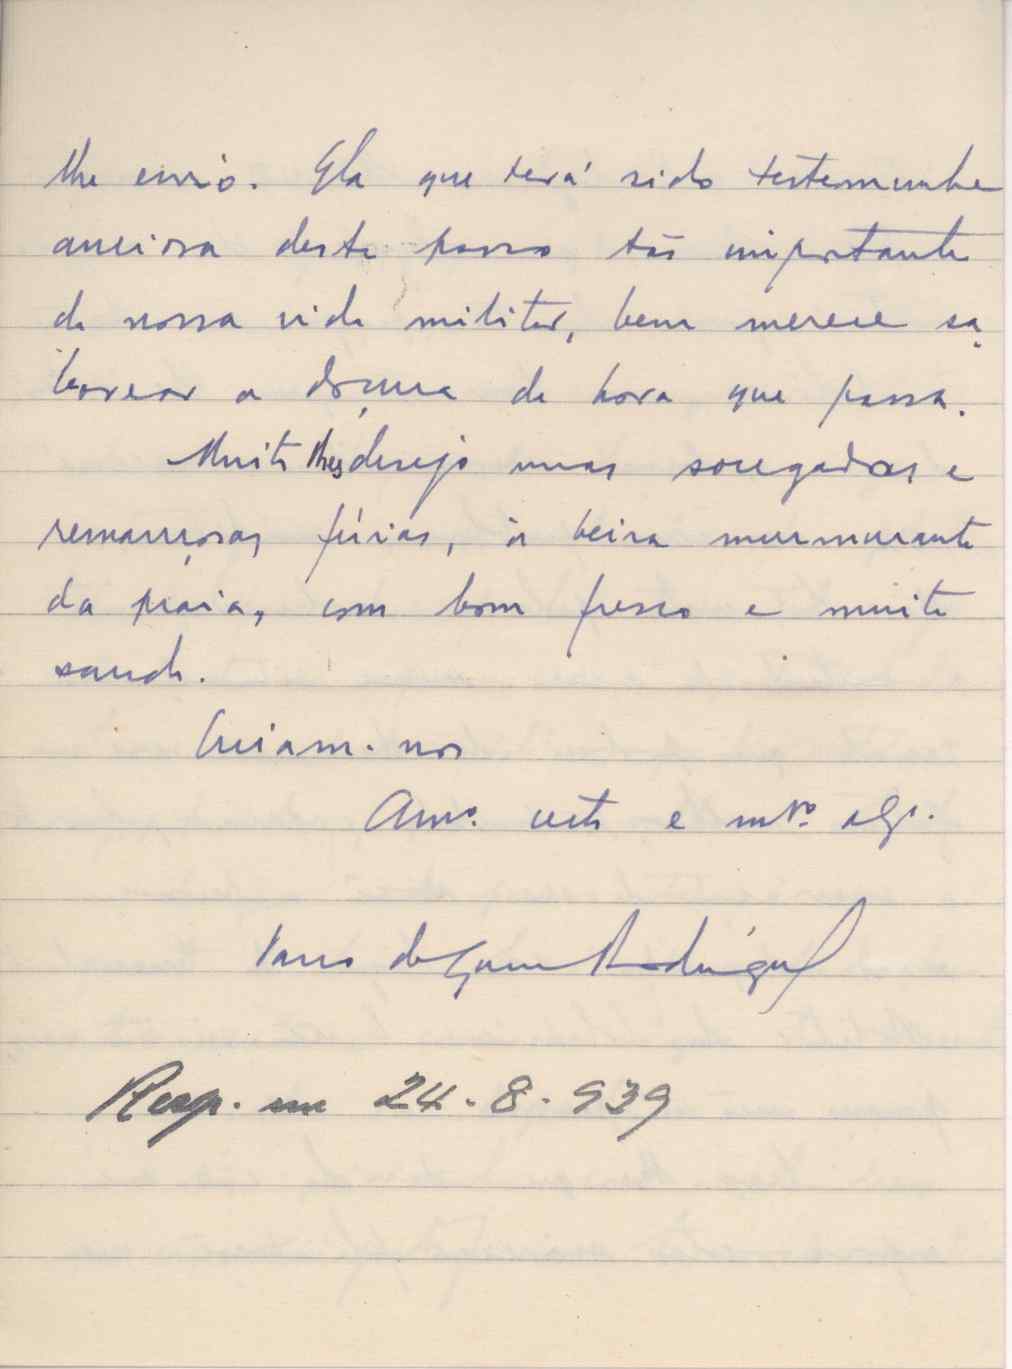 lhe envio. Ela que terá sido testemunha
anciosa deste passo tão importante
da nossa vida militar, bem merece sa
borear a doçura da hora que passa.
Muito lhes desejo umas socegadas e
remançosas férias, à beira murmurante
da praia, com bom fresco e muita
saude.
Creiam-nos
Amo. certo e mto. obgo.
Vasco da Gama Rodrigues
Resp. em 24-8-939